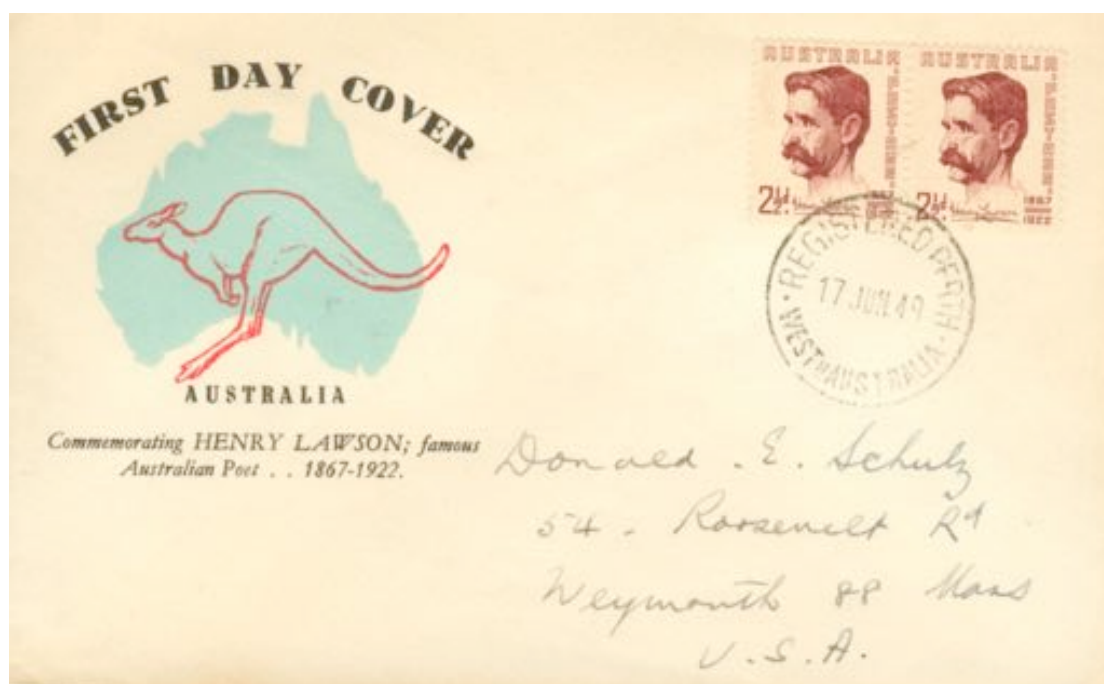 FIRST DAY COVER
AUSTRALIA
Commemorating HENRY LAWSON; famous
Australian Poet . . 1867-1922.
AUSTRALIA
2½d.
AUSTRALIA
2½d.
Henry Lawson
1867
1922
REGISTERED PERTH
17 JUN 49
WEST AUSTRALIA
Donald . E. Schulz
54 . Roosevelt Rd
Weymouth 88 Mass
U.S.A.